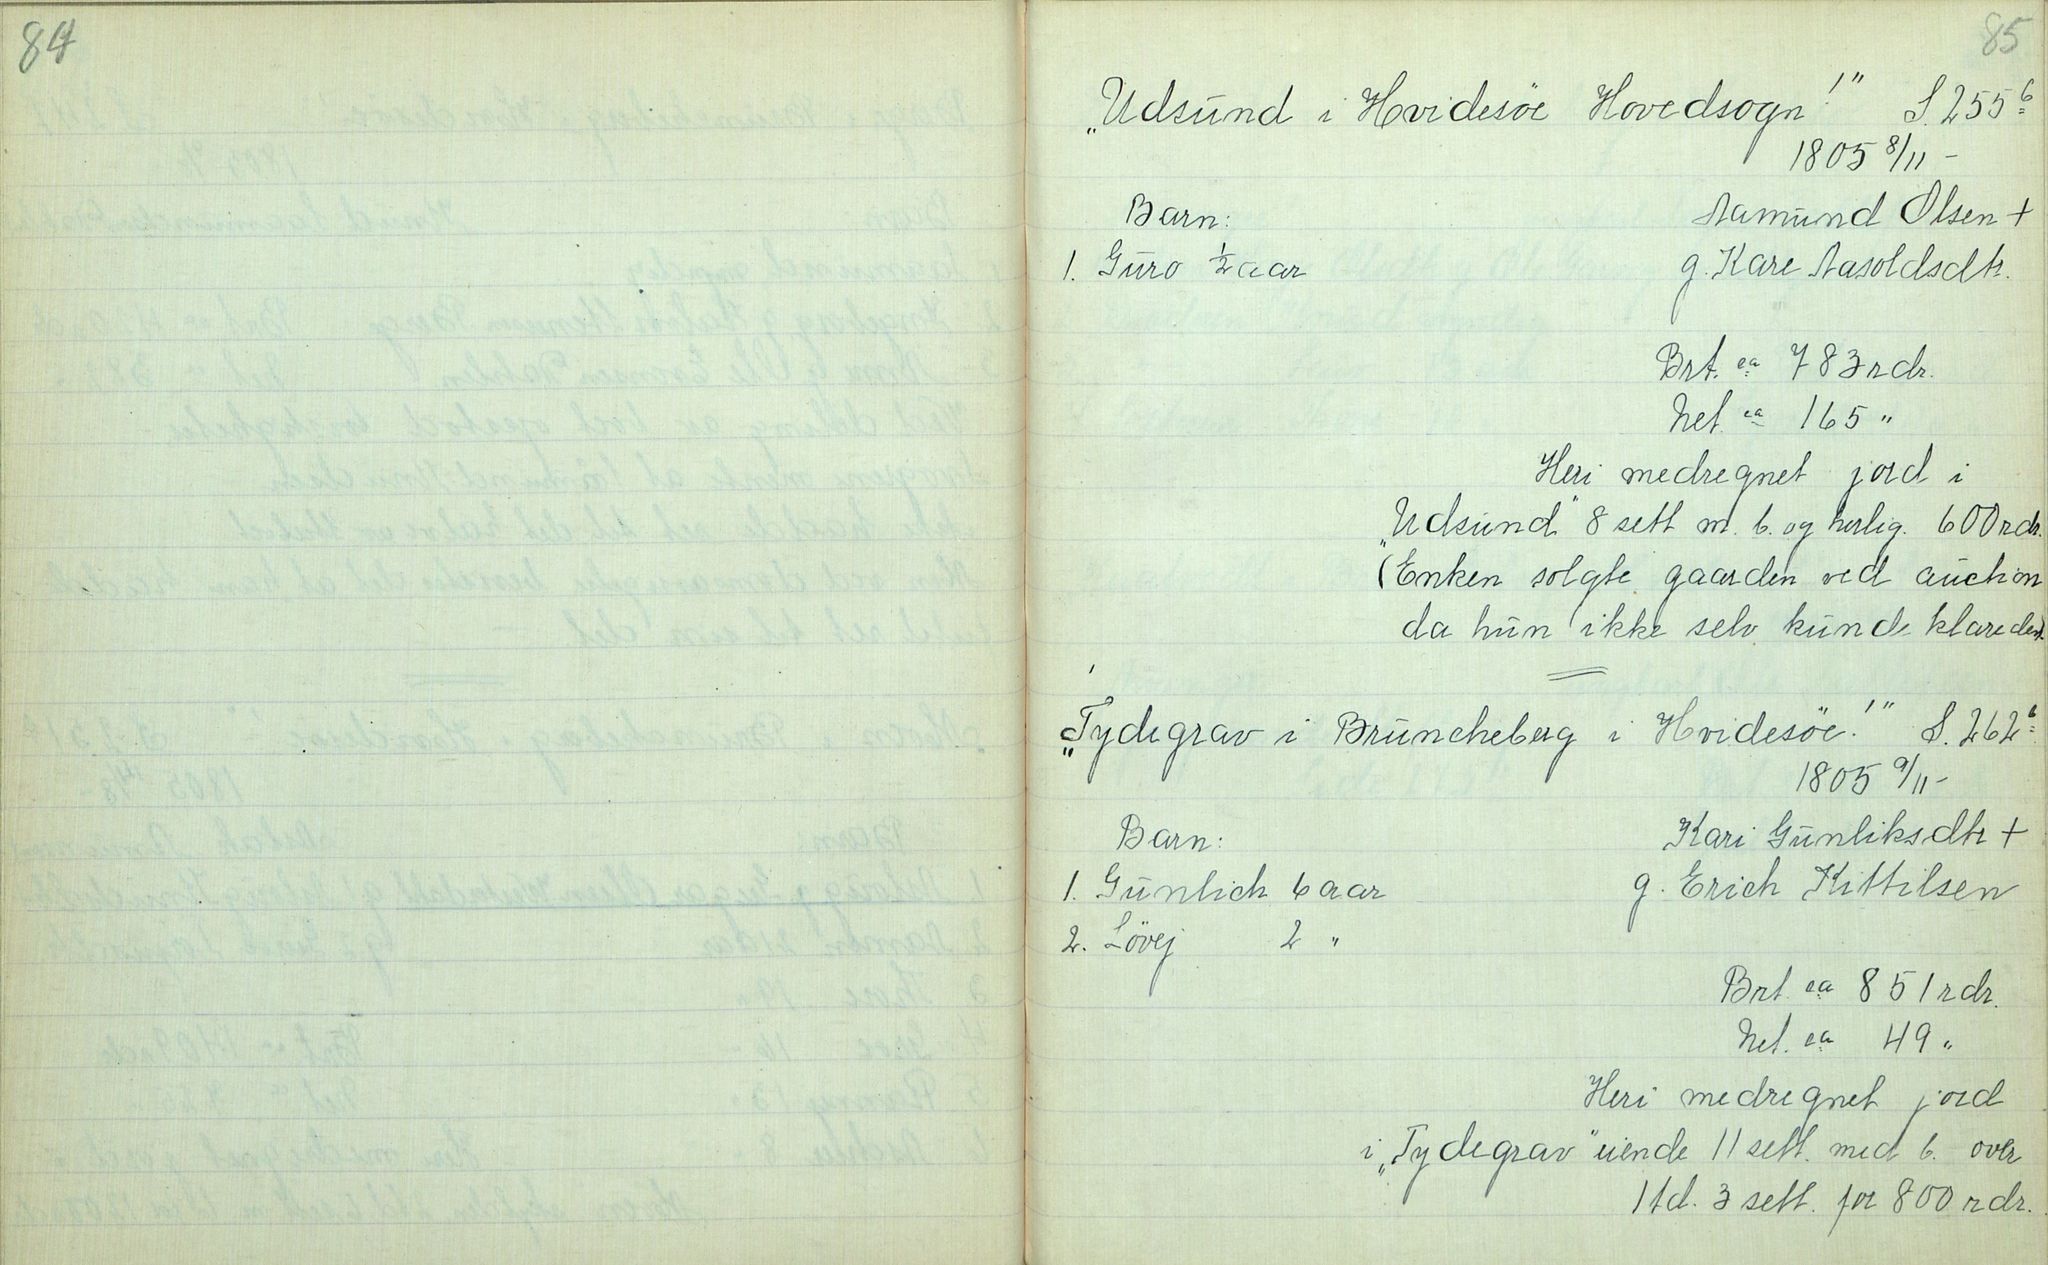 84
85
„Udsund i Hvidesöe Hovedsogn!" S. 255 b
1805 8/11 –
Barn: Aamund Olsen +
1. Guro ½ aar g. Kare Aasoldsdtr.
Brt. ca 783 rdr.
Net. ca 165 "
Heri medregnet jord i
„Udsund" 8 sett m. b. og herlig. 600 rdr.
(Enken solgte gaarden ved auction
da hun ikke selv kunde klare den).
„Tydegrav i Bruncheberg i Hvidesöe!" S. 262 b
1805 9/11 –
Barn: Kari Gunliksdtr +
1. Gunlich 6 aar g. Erich Kittilsen
2. Lövej 2 "
Brt. ca 851 rdr.
Net. ca 49 "
Heri medregnet jord
i „Tydegrav" uiende 11 sett. med b. over
1 td. 3 sett. for 800 rdr.